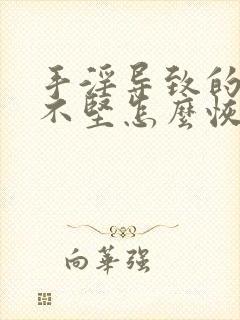 手淫导致的
不坚怎麽恢
向華强